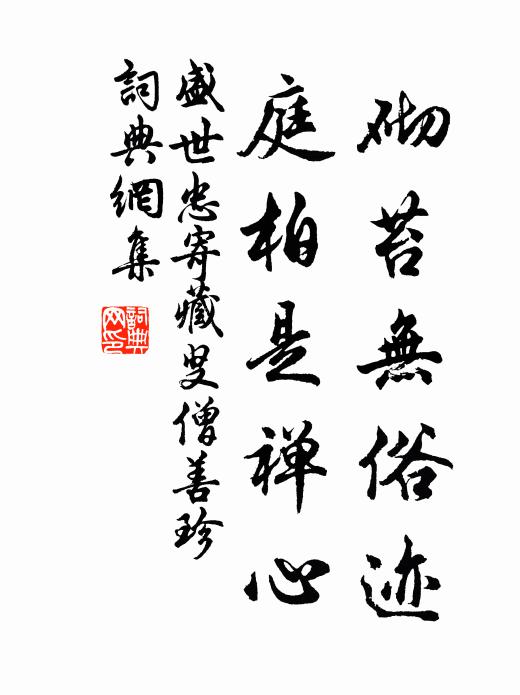 砌苔無俗迹
庭柏是禅心
盛世忠寄藏叟僧善珍
詞典網集
詞典网印